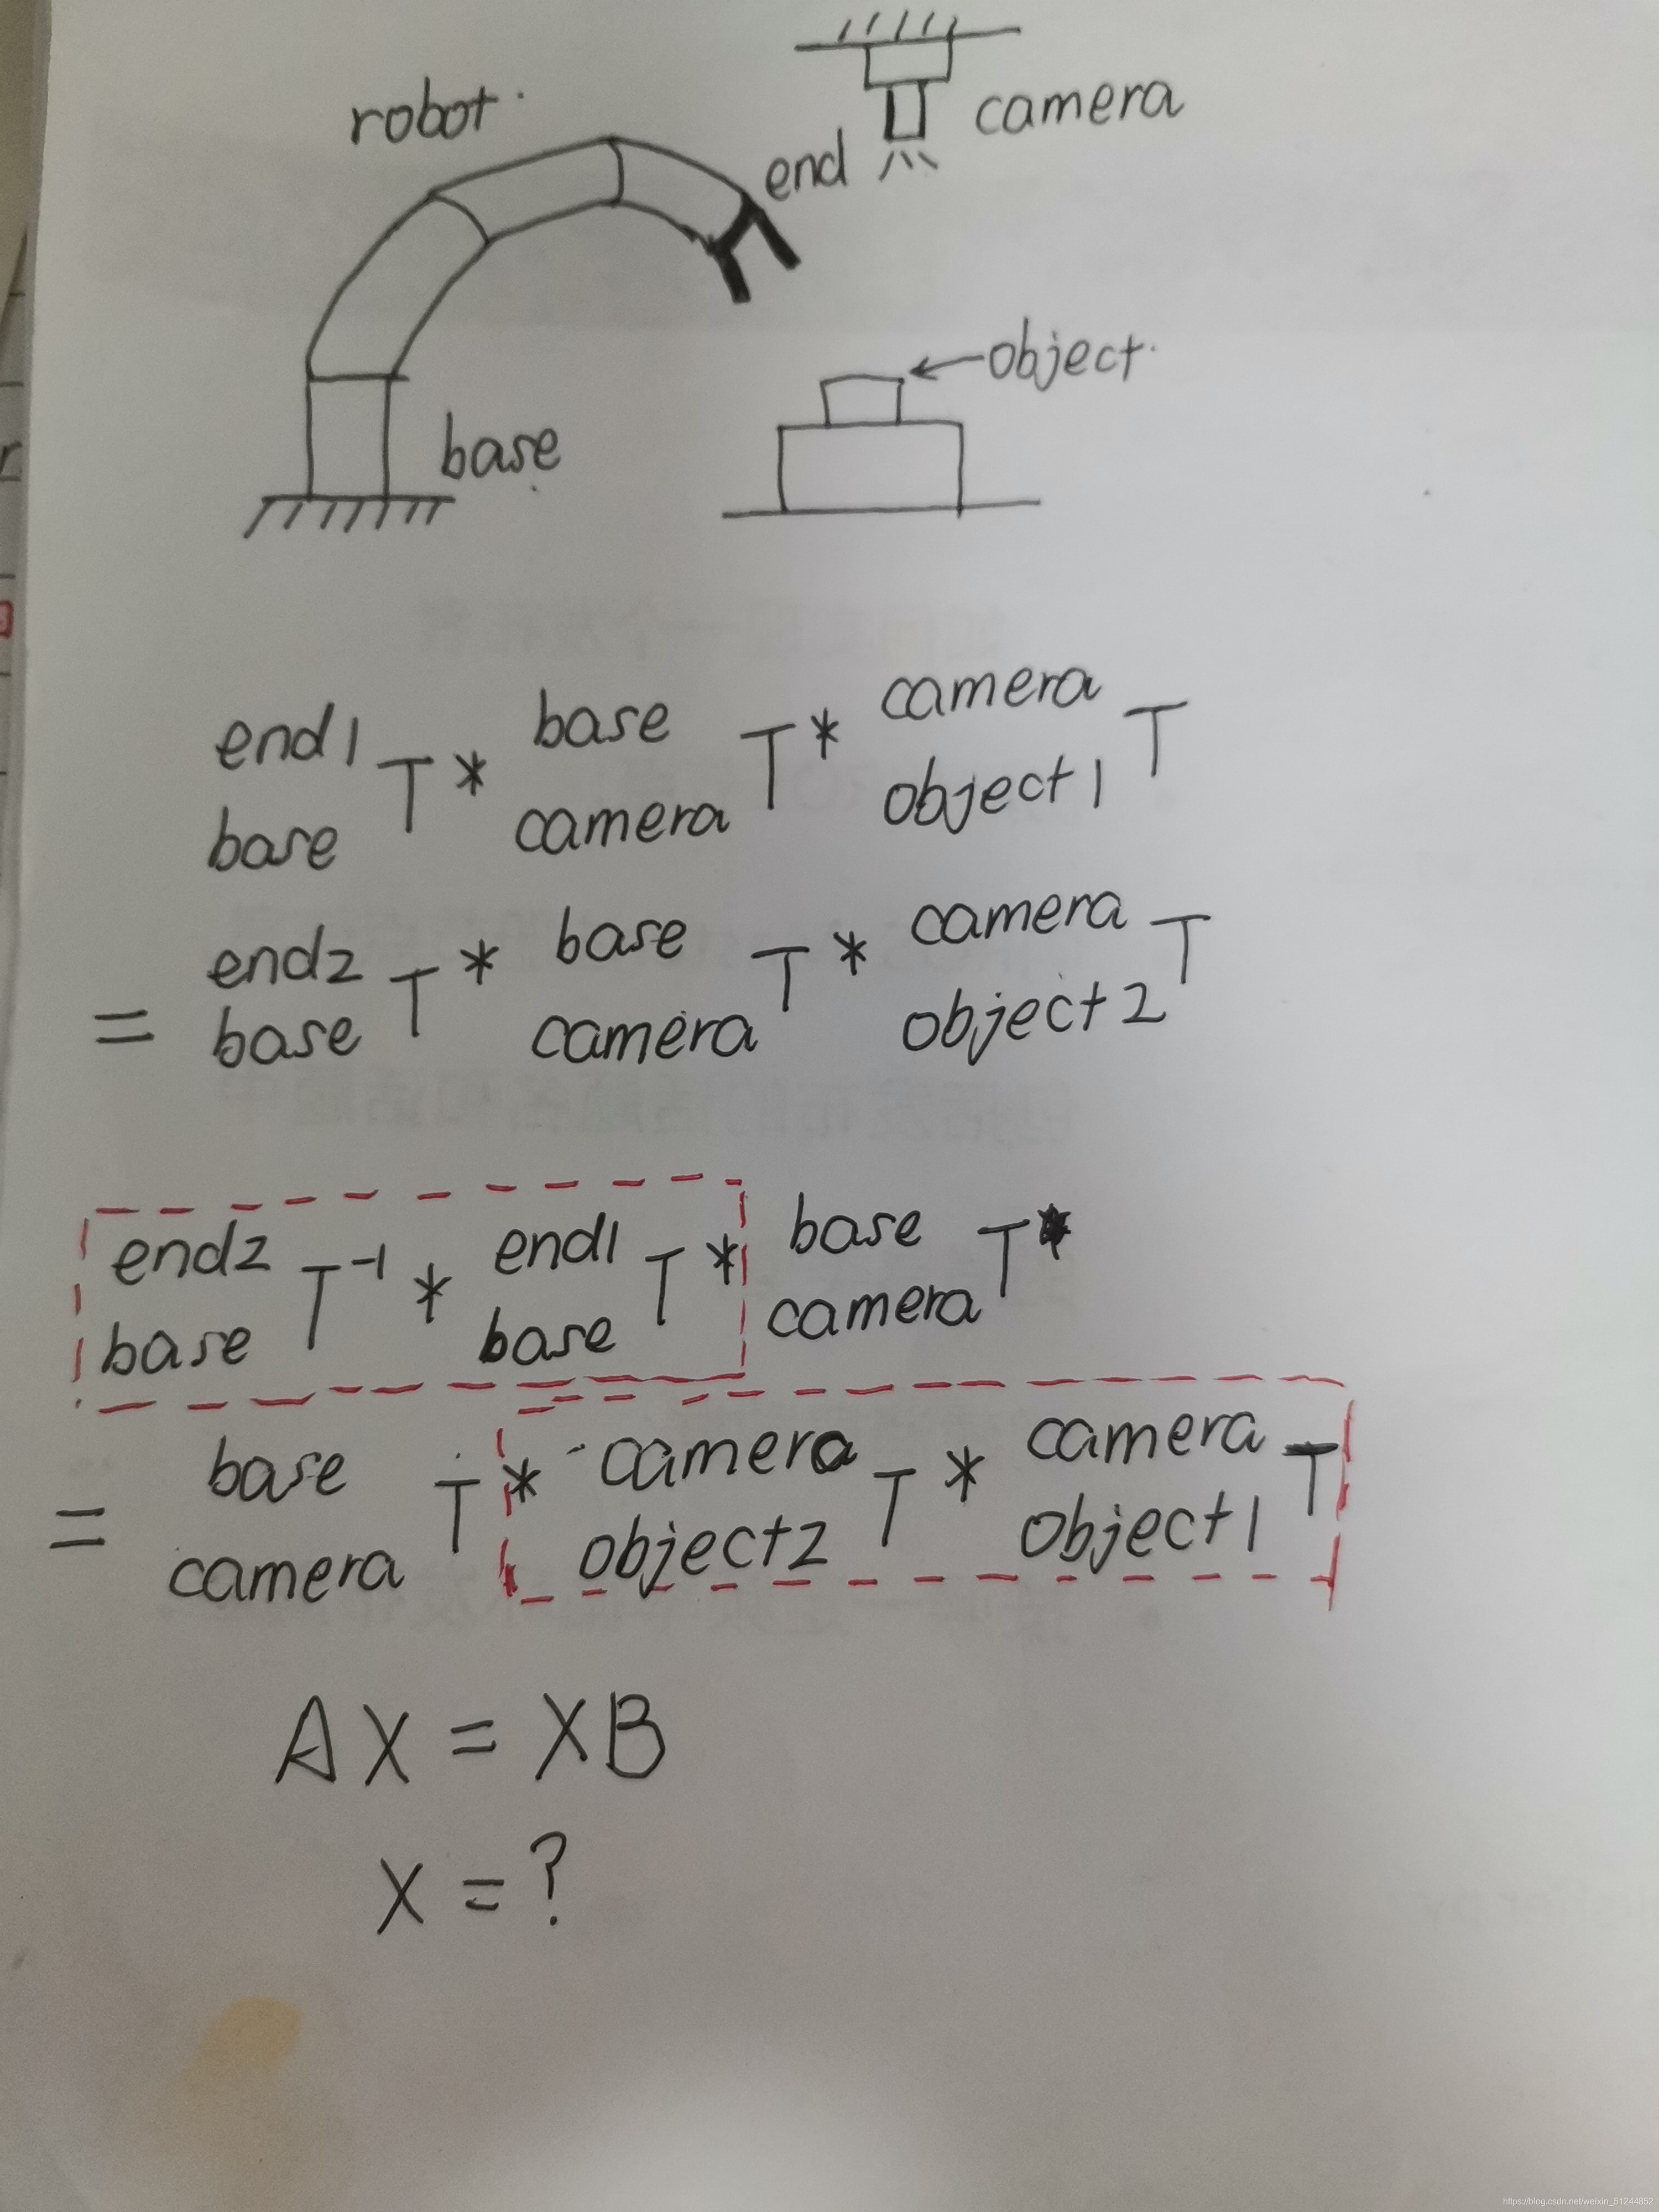 robot.
camera
end
object.
base
end1 T * base T * camera T
base camera object1
end2 T * base T * camera T
= base camera object2
end2 T⁻¹ * end1 T * base T*
base base camera
base T * camera T * camera T
= camera object2 object1
AX = XB
X = ?
https://blog.csdn.net/weixin_51244852